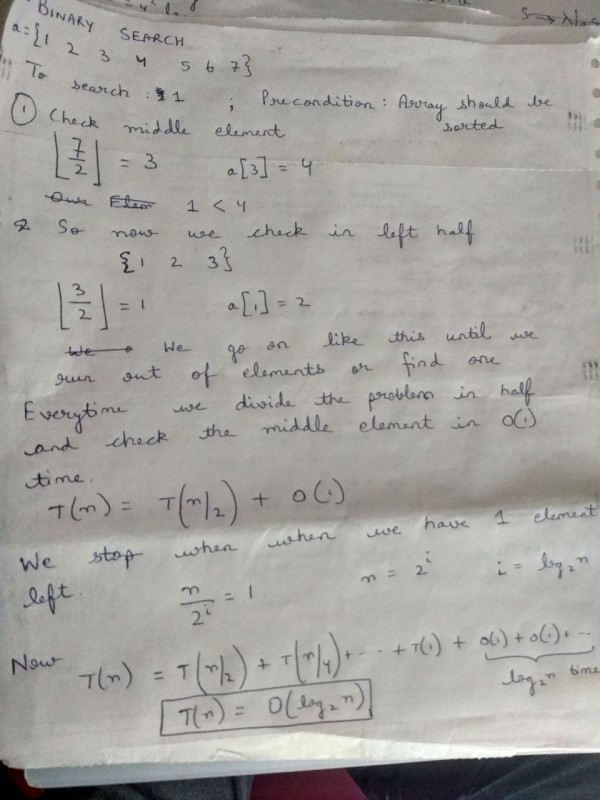 BINARY SEARCH
a = {1 2 3 4 5 6 7}
To search : 1 ; Precondition : Array should be sorted
① Check middle element
⌊7/2⌋ = 3 a[3] = 4
Our Elem 1 < 4
2 So now we check in left half
{1 2 3}
⌊3/2⌋ = 1 a[1] = 2
We We go on like this until we
run out of elements or find one
Everytime we divide the problem in half
and check the middle element in O(1)
time.
T(n) = T(n/2) + O(1)
We stop when when we have 1 element
left. n/2^i = 1 n = 2^i i = log₂n
Now T(n) = T(n/2) + T(n/4) + -- + T(1) + O(1) + O(1) + --
log₂n time
T(n) = O(log₂n)